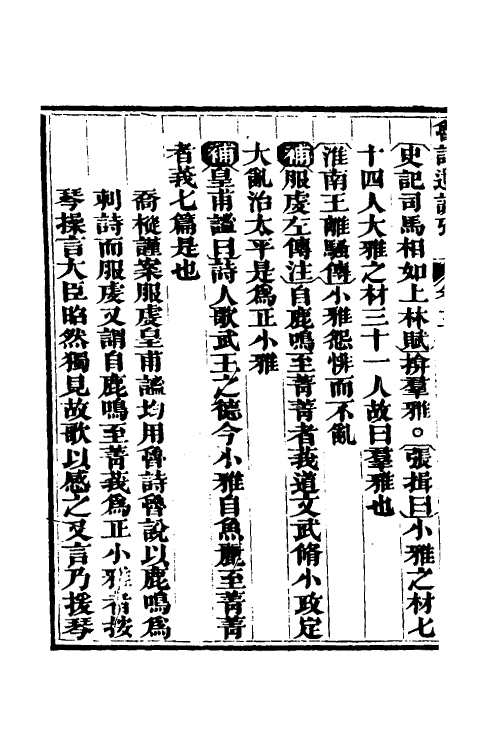 魯詩遺說攷
史記司馬相如上林賦揜羣雅○張揖曰小雅之材七
十四人大雅之材三十一人故曰羣雅也
淮南王離騷傳小雅怨悱而不亂
補服虔左傳注自鹿鳴至菁菁者莪道文武脩小政定
大亂治太平是爲正小雅
補皇甫謐曰詩人歌武王之德今小雅自魚麗至菁菁
者莪七篇是也
喬樅謹案服虔皇甫謐均用魯詩魯說以鹿鳴爲
刺詩而服虔又謂自鹿鳴至菁莪爲正小雅者按
琴操言大臣昭然獨見故歌以感之又言乃援琴